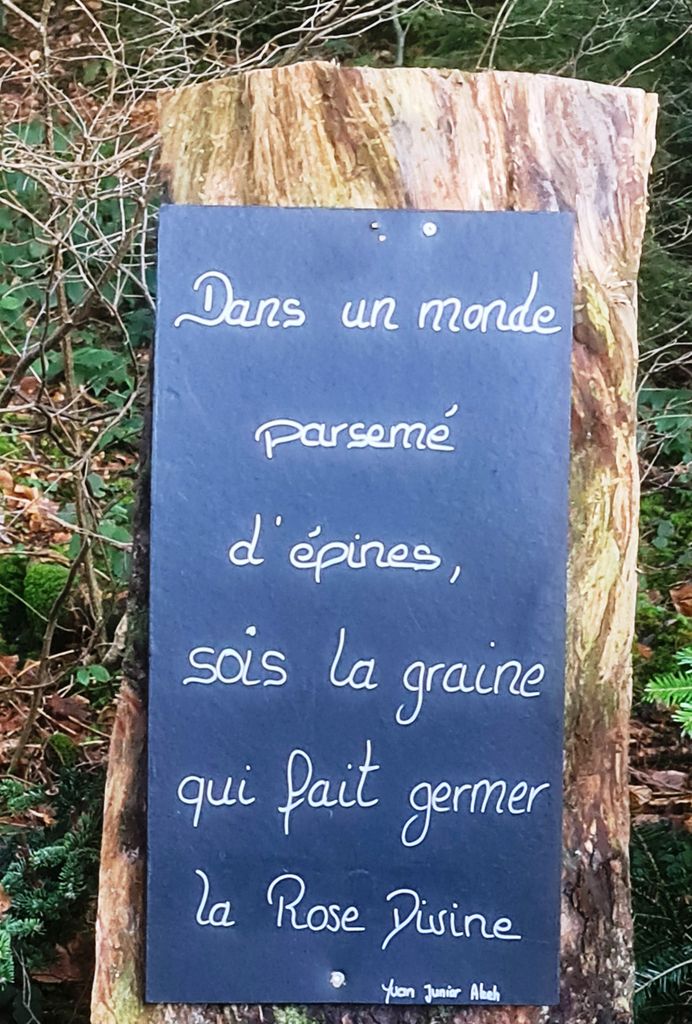 Dans un monde
parsemé
d'épines,
sois la graine
qui fait germer
la Rose Divine
Yvan Junior